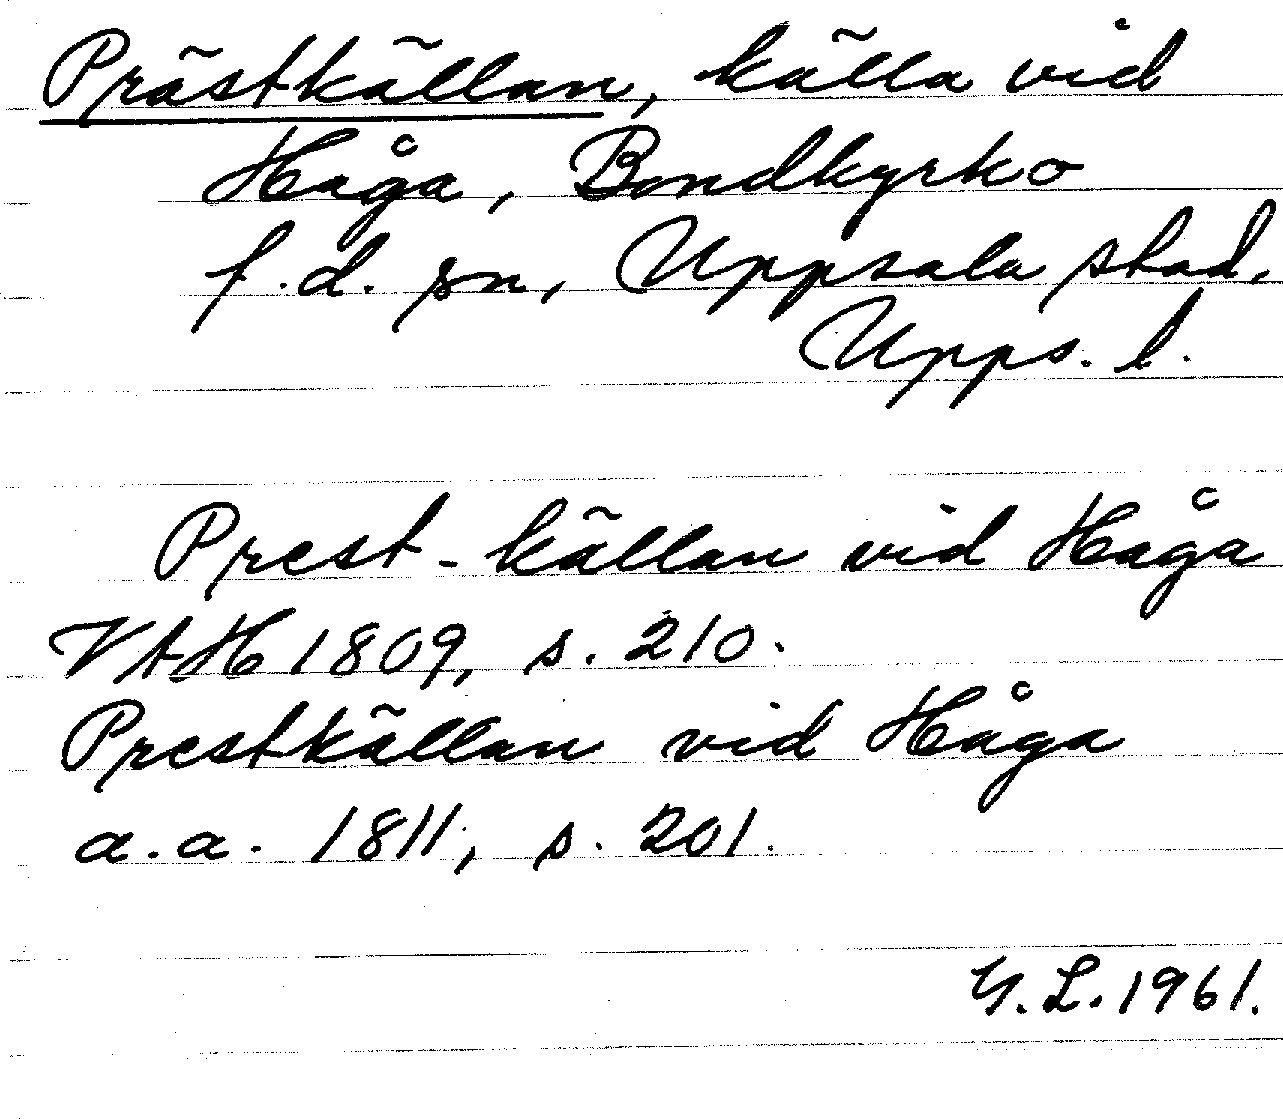 Prästkällan, källa vid
Håga, Bondkyrko
f.d. sn, Uppsala stad,
Upps. l.
Prest-källan vid Håga
VAH 1809, s. 210.
Prestkällan vid Håga
a.a. 1811, s. 201.
G.L. 1961.